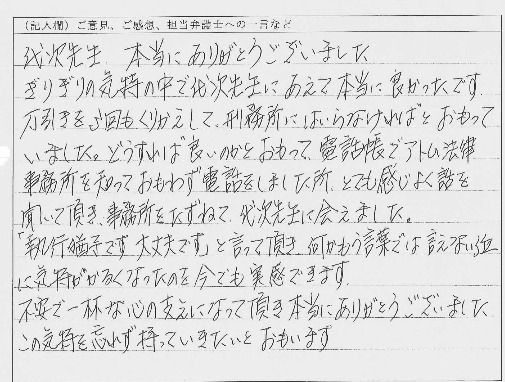 （記入欄）ご意見、ご感想、担当弁護士への一言など
代次先生、本当にありがとうございました
ぎりぎりの気持の中で代次先生にあえて本当に良かったです。
万引きを5回もくりかえして、刑務所にはいらなければとおもって
いました。どうすれば良いのかとおもって、電話帳でアトム法律
事務所を知っておもわず電話をしました所、とても感じよく話を
聞いて頂き、事務所をたずねて、代次先生に会えました。
「執行猶予です大丈夫です」と言って頂き、何かもう言葉では言えない位
に気持ががるくなったのを今でも実感できます。
不安で一杯な心の支えになって頂き本当にありがとうございました
この気持を忘れず持っていきたいとおもいます